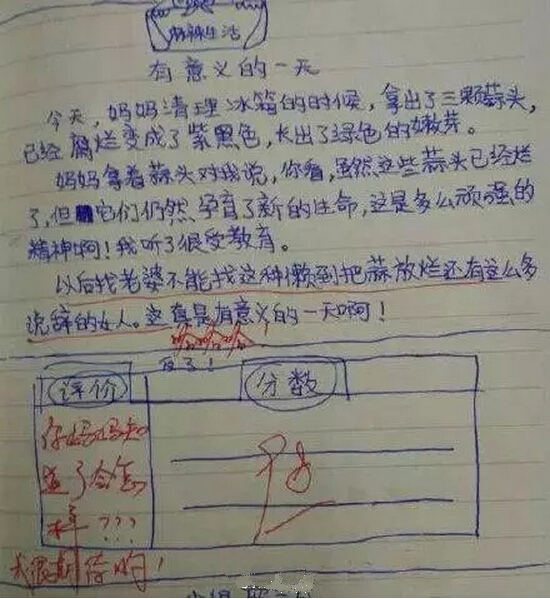 麻辣生活
有意义的一天
今天，妈妈清理冰箱的时候，拿出了三颗蒜头，
已经腐烂变成了紫黑色，长出了绿色的嫩芽。
妈妈拿着蒜头对我说，你看，虽然这些蒜头已经烂
了，但它们仍然孕育了新的生命，这是多么顽强的
精神啊！我听了很受教育。
以后找老婆不能找这种懒到把蒜放烂还有这么多
说辞的女人。这真是有意义的一天啊！
哈哈哈
评价
分数
你妈妈知
道了会怎
样？？？
我很期待哟！
优